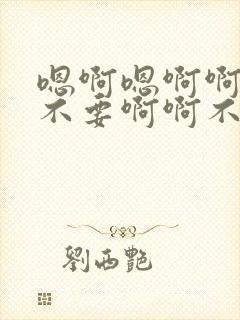 嗯啊嗯啊啊
不要啊啊不
劉西艷